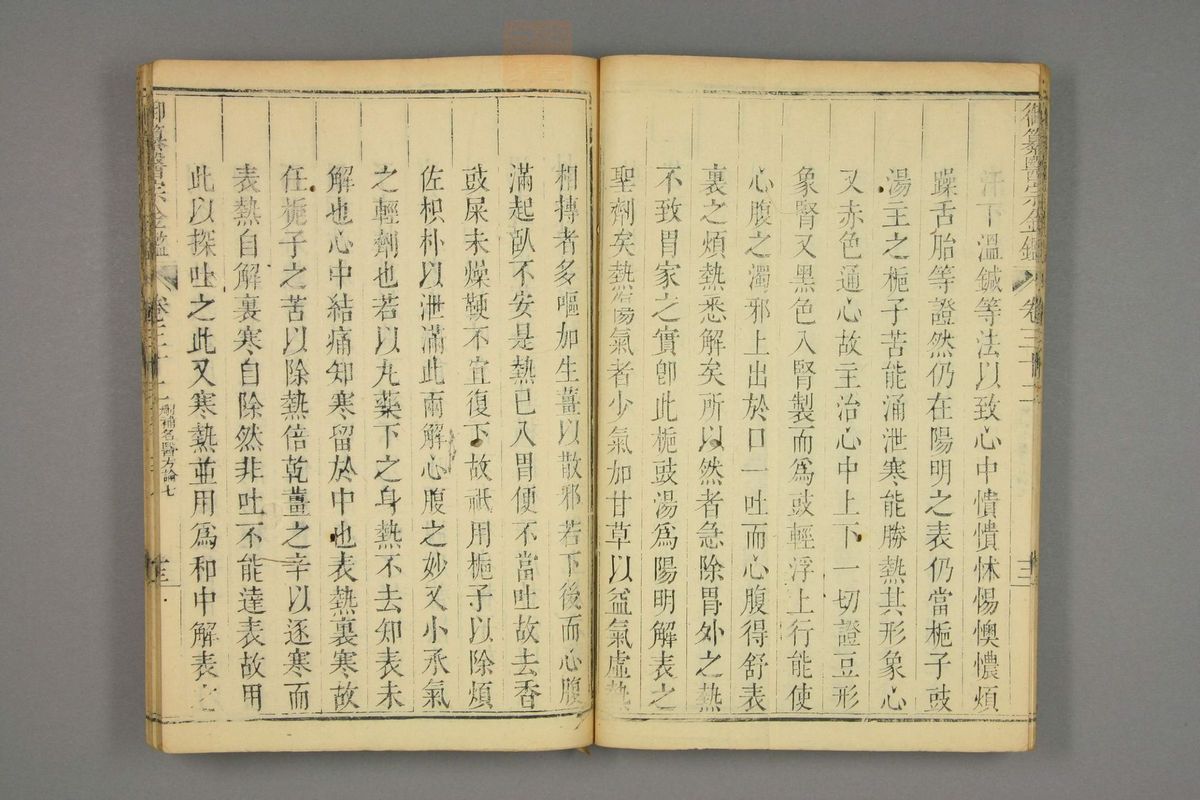 汗下溫鍼等法以致心中憒憒怵惕懊憹煩
躁舌胎等證然仍在陽明之表仍當梔子豉
湯主之梔子苦能涌泄寒能勝熱其形象心
又赤色通心故主治心中上下一切證豆形
象腎又黑色入腎製而為豉輕浮上行能使
心腹之濁邪上出於口一吐而心腹得舒表
裏之煩熱悉解矣所以然者急除胃外之熱
不致胃家之實卽此梔豉湯為陽明解表之
聖劑矣熱傷氣者少氣加甘草以益氣虛熱
相摶者多嘔加生薑以散邪若下後而心腹
滿起臥不安是熱已入胃便不當吐故去香
豉屎未燥鞕不宜復下故祇用梔子以除煩
佐枳朴以泄滿此兩解心腹之妙又小承氣
之輕劑也若以丸藥下之身熱不去知表未
解也心中結痛知寒留於中也表熱裏寒故
任梔子之苦以除熱倍乾薑之辛以逐寒而
表熱自解裏寒自除然非吐不能達表故用
此以探吐之此又寒熱並用為和中解表之
御纂醫宗金鑑
卷三十二
刪補名醫方論七
十三